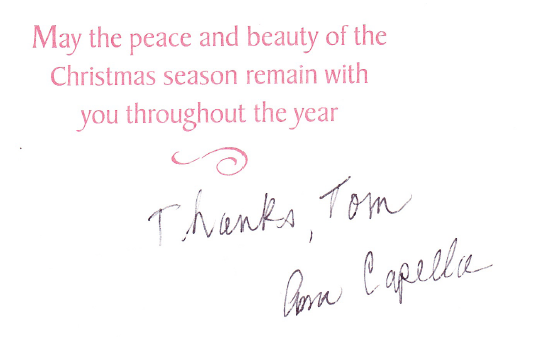 May the peace and beauty of the
Christmas season remain with
you throughout the year
Thanks, Tom
Ann Capella